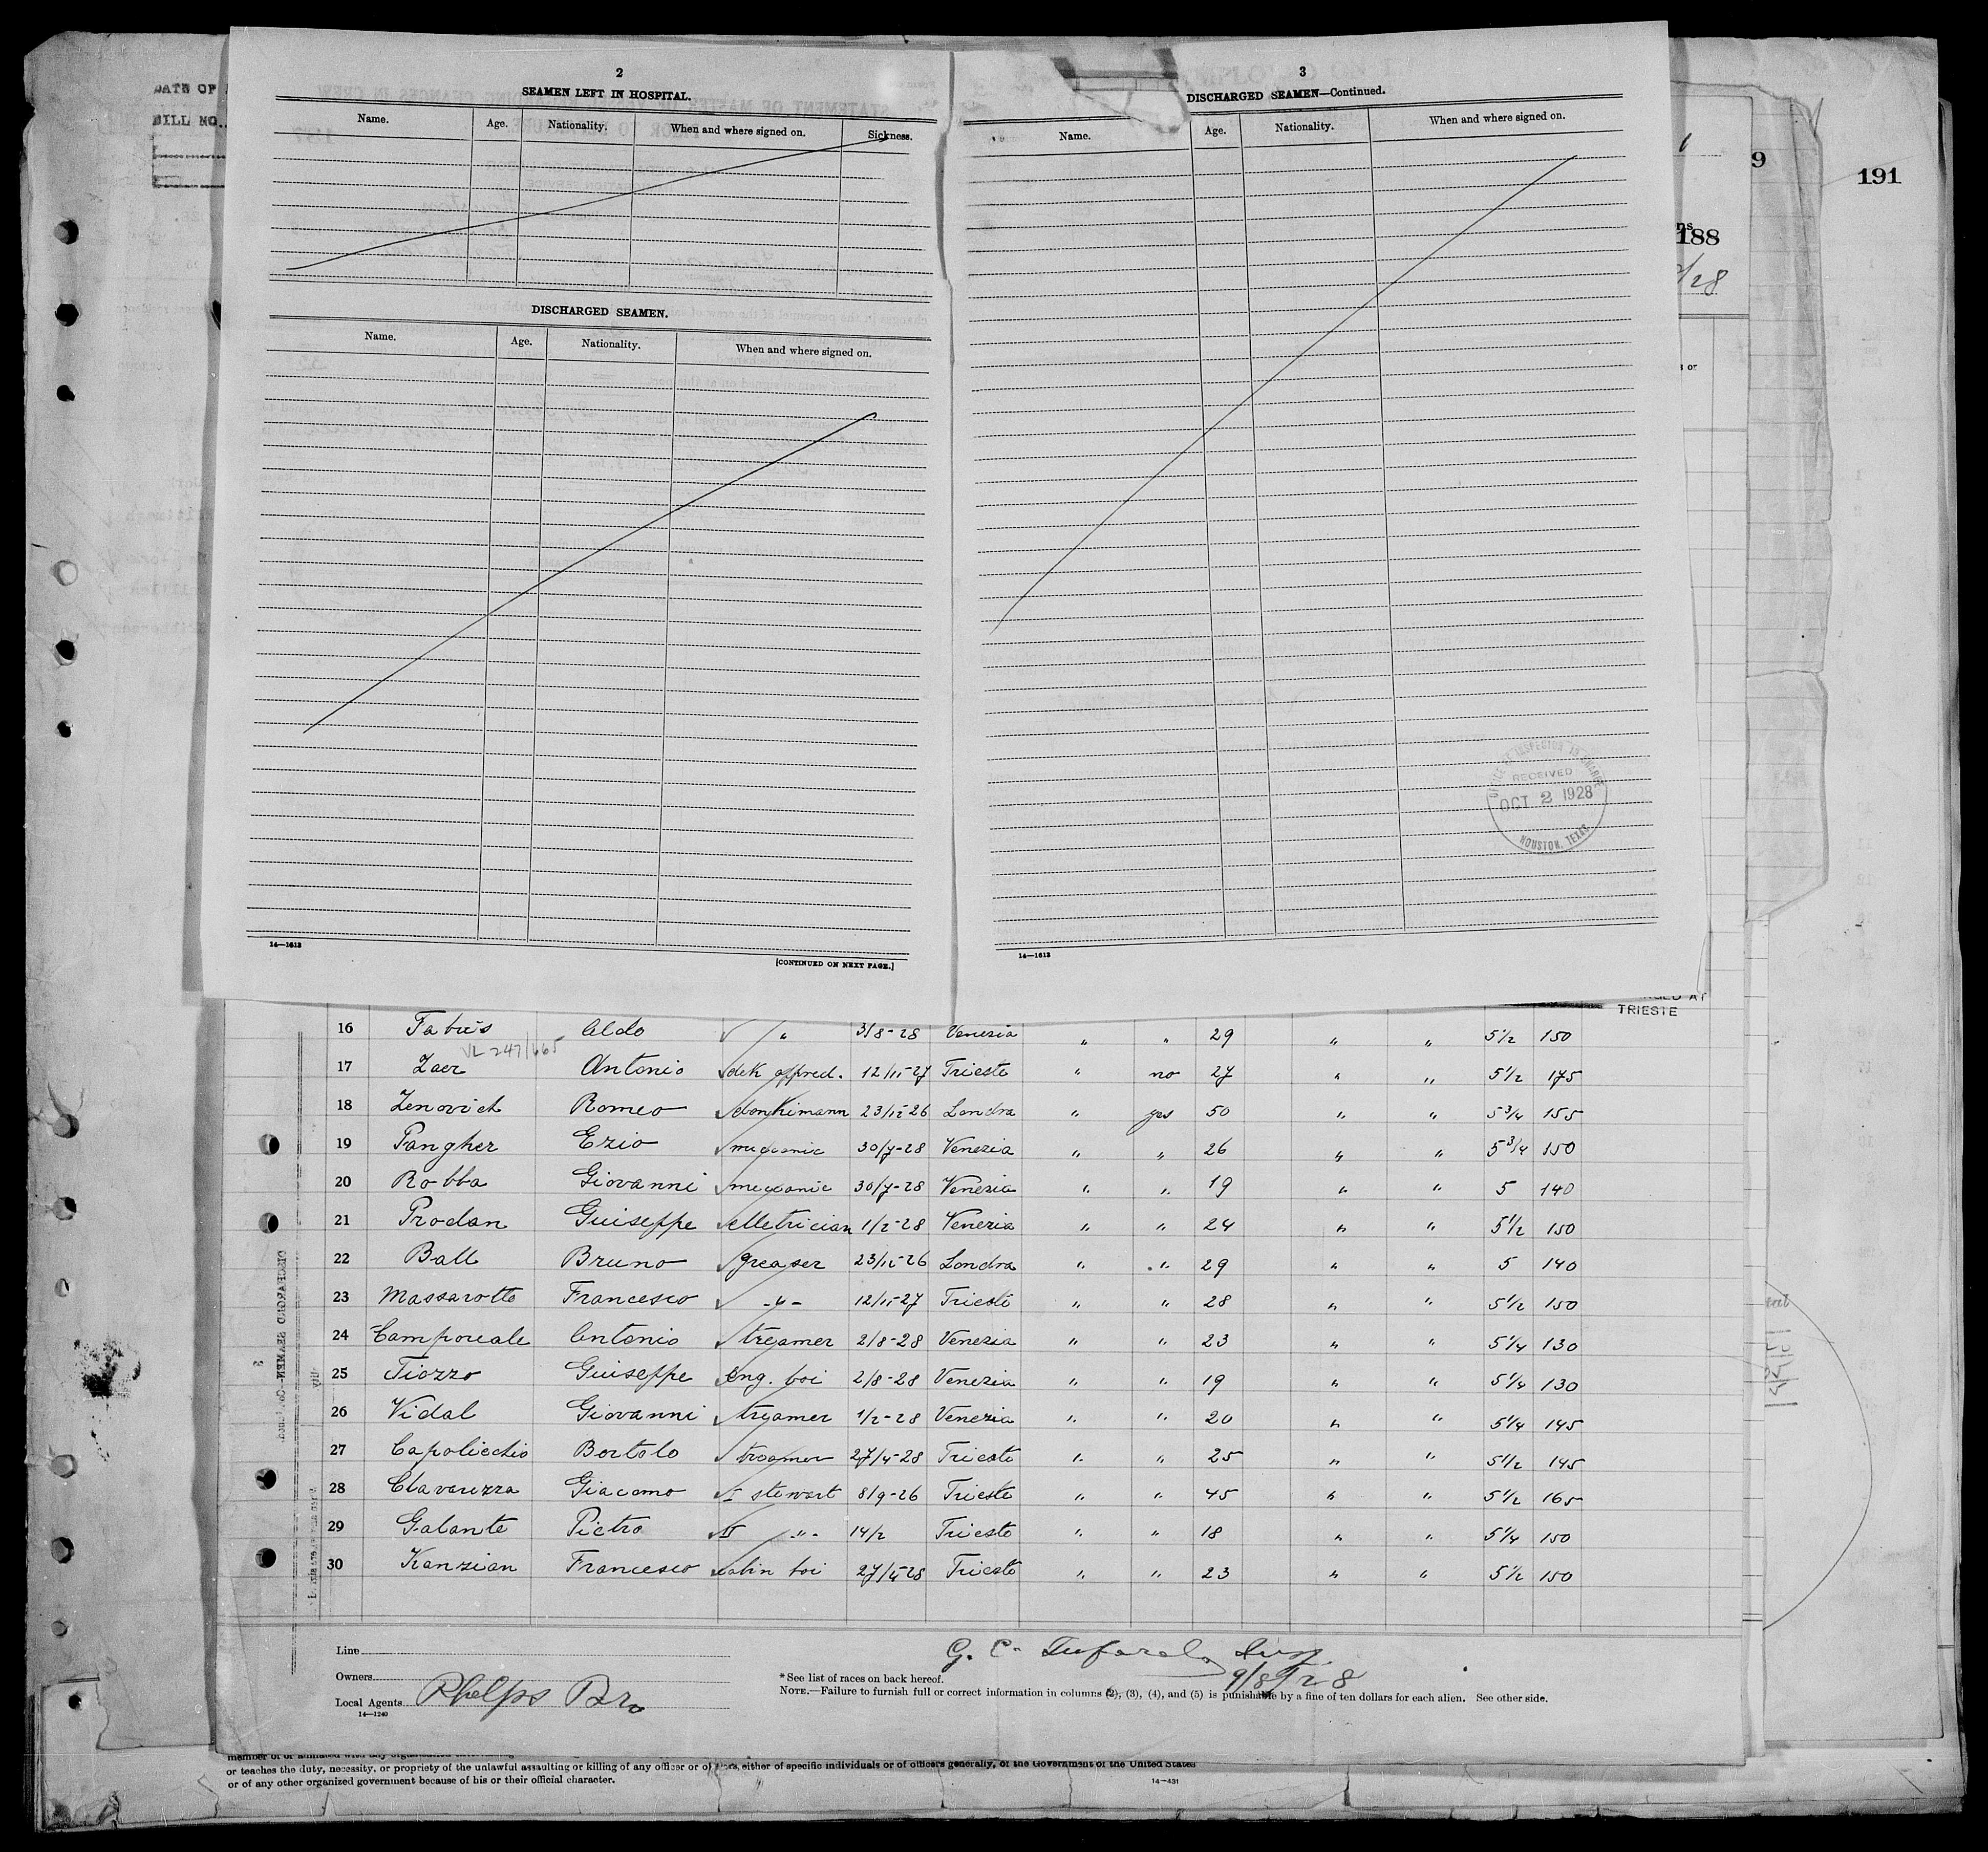 DATE OF
BILL NO.
2
SEAMEN LEFT IN HOSPITAL.
Name. Age. Nationality. When and where signed on. Sickness.
DISCHARGED SEAMEN.
Name. Age. Nationality. When and where signed on.
14—1613
[CONTINUED ON NEXT PAGE.]
3
DISCHARGED SEAMEN—Continued.
Name. Age. Nationality. When and where signed on.
OFFICE OF INSPECTOR IN CHARGE
RECEIVED
OCT 2 1928
HOUSTON, TEXAS
14—1613
9
191
188
/28
TRIESTE
16 Fabris Aldo " 3/8-28 Venezia " " 29 " " 5 1/2 150
VL 247/665
17 Zaer Antonio dek appred. 12/11-27 Trieste " no 27 " " 5 1/2 175
18 Zenovich Romeo donkimann 23/12-26 Londra " yes 50 " " 5 3/4 155
19 Pangher Ezio meccanic 30/7-28 Venezia " " 26 " " 5 3/4 150
20 Robba Giovanni meccanic 30/7-28 Venezia " " 19 " " 5 140
21 Prodan Guiseppe elletrician 1/2-28 Venezia " " 24 " " 5 1/2 150
22 Ball Bruno greaser 23/12-26 Londra " " 29 " " 5 140
23 Massarotto Francesco -"- 12/11-27 Trieste " " 28 " " 5 1/2 150
24 Camporeale Antonio treamer 2/8-28 Venezia " " 23 " " 5 1/4 130
25 Tiozzo Guiseppe eng. boi 2/8-28 Venezia " " 19 " " 5 1/4 130
26 Vidal Giovanni treamer 1/2-28 Venezia " " 20 " " 5 1/4 145
27 Capolicchio Bortolo treamer 27/4-28 Trieste " " 25 " " 5 1/2 145
28 Clavarezza Giacomo I stewart 8/9-26 Trieste " " 45 " " 5 1/2 165
29 Galante Pietro II -"- 14/2 Trieste " " 18 " " 5 1/4 150
30 Kanzian Francesco cabin boi 27/4-28 Trieste " " 23 " " 5 1/2 150
Line
Owners
Local Agents Phelps Bro
14—1240
G. C.
9/8/28
* See list of races on back hereof.
NOTE.—Failure to furnish full or correct information in columns (2), (3), (4), and (5) is punishable by a fine of ten dollars for each alien. See other side.
or teaches the duty, necessity, or propriety of the unlawful assaulting or killing of any officer or officers, either of specific individuals or of officers generally, of the Government of the United States
or of any other organized government because of his or their official character.
14—431